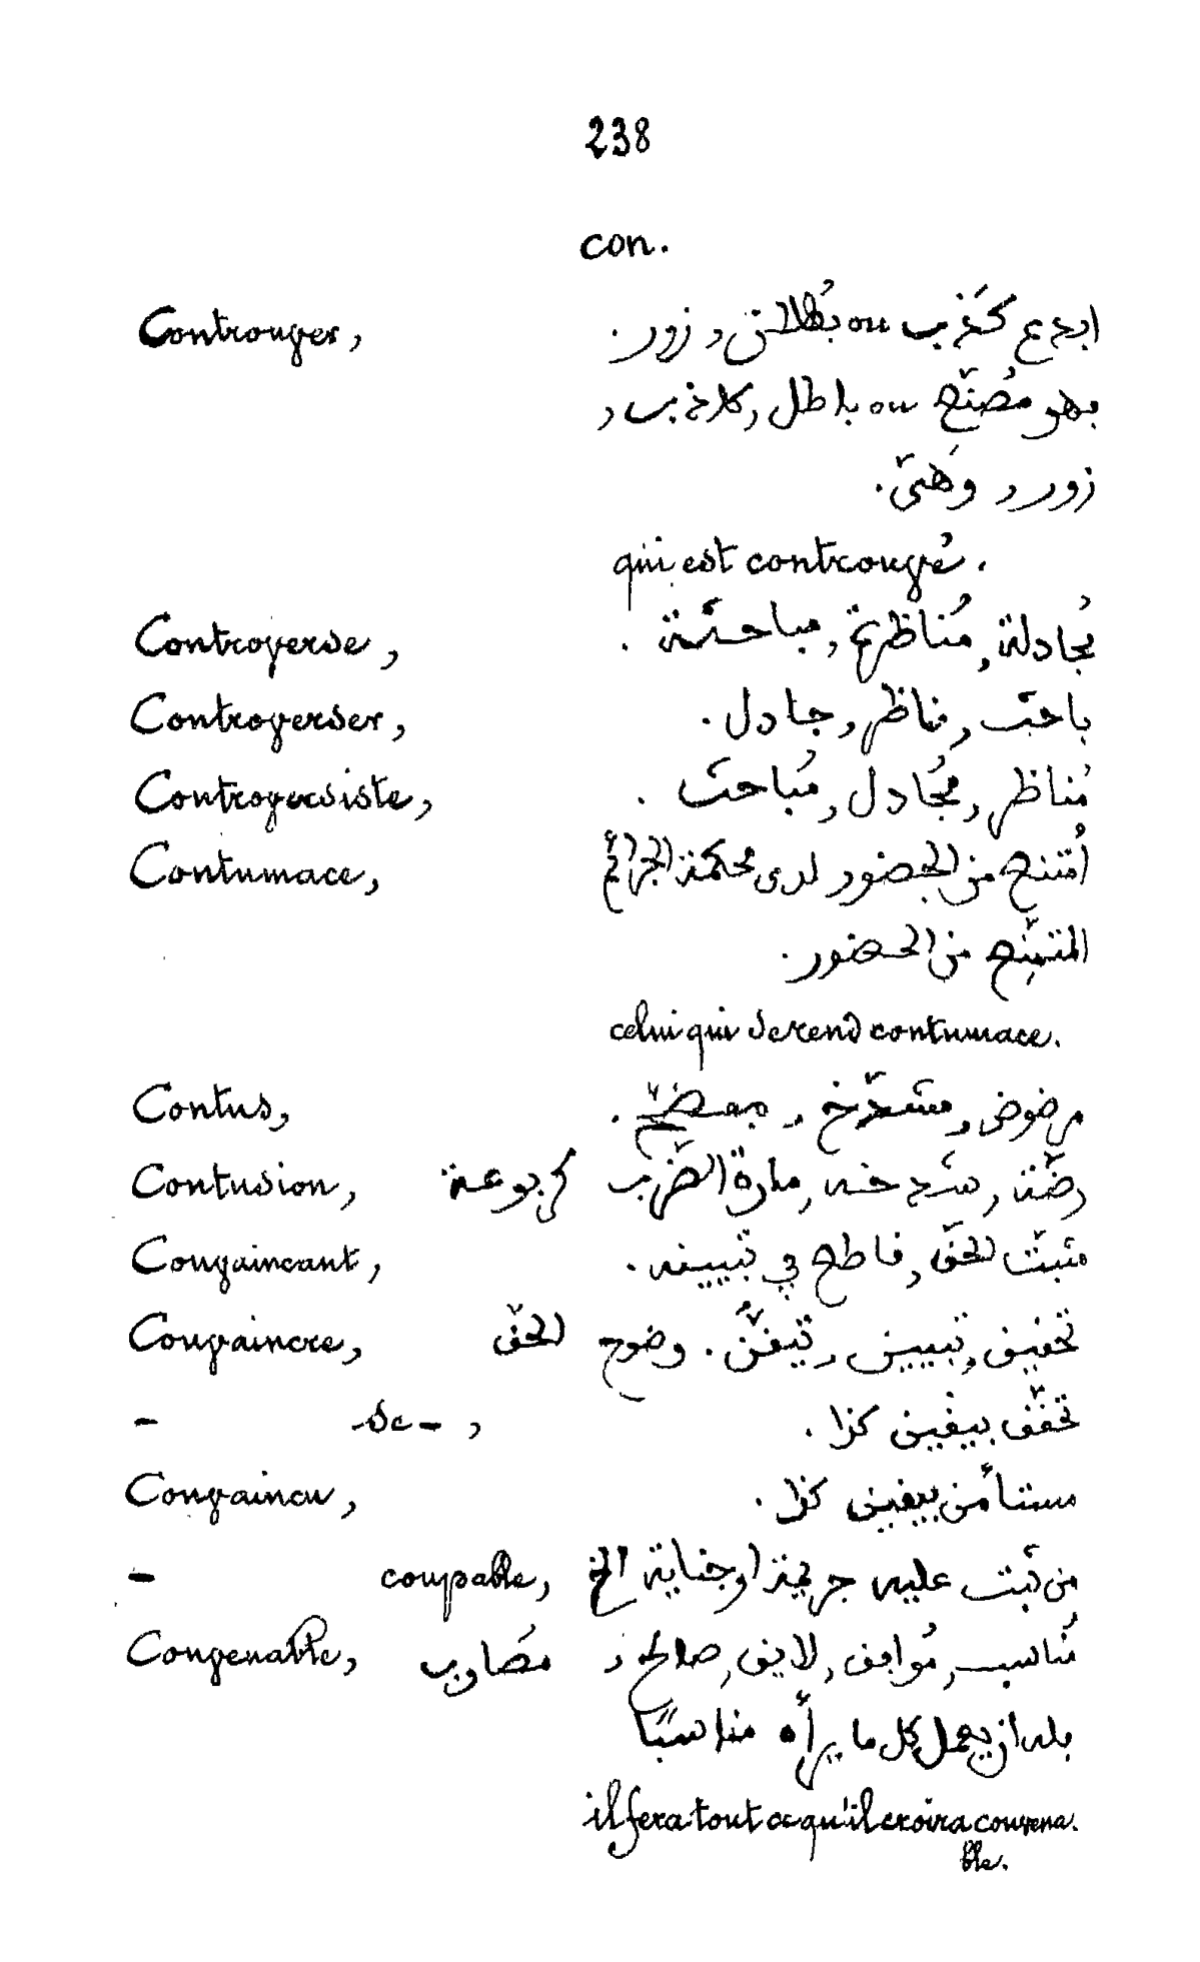 238
con.
Controuver, ابدع كَذِب ou بُطلان, زور.
بهو مُصنّع ou باطل, كاذب,
زور, وَهمىّ.
qui est controuvé.
Controverse, مُجادلة, مُناظرة, مباحثة.
Controverser, باحث, ناظر, جادل.
Controversiste, مُناظر, مُجادل, مُباحث.
Contumace, أمتنع من الحضور لدى محكمة الجرائم
المتمنّع من الحضور.
celui qui se rend contumace.
Contus, مرضوض, مشدّخ,
Contusion, رضّة, شدخه, الضرب
Convaincant, مثبت الحقّ, قاطع في تبيينه.
Convaincre, تحقيق, تبيين, تيقّن. وضوح الحقّ
- se -, تحقّق بيقين كذا.
Convaincu, مستأمن بيقين كذا.
- coupable, من ثبت عليه جريمة او جناية الخ
Convenable, مُناسب, مُوافق, لايق, صالح,
يعمل كل ما يرأه مناسبًا
il fera tout ce qu'il croira convena.
ble.